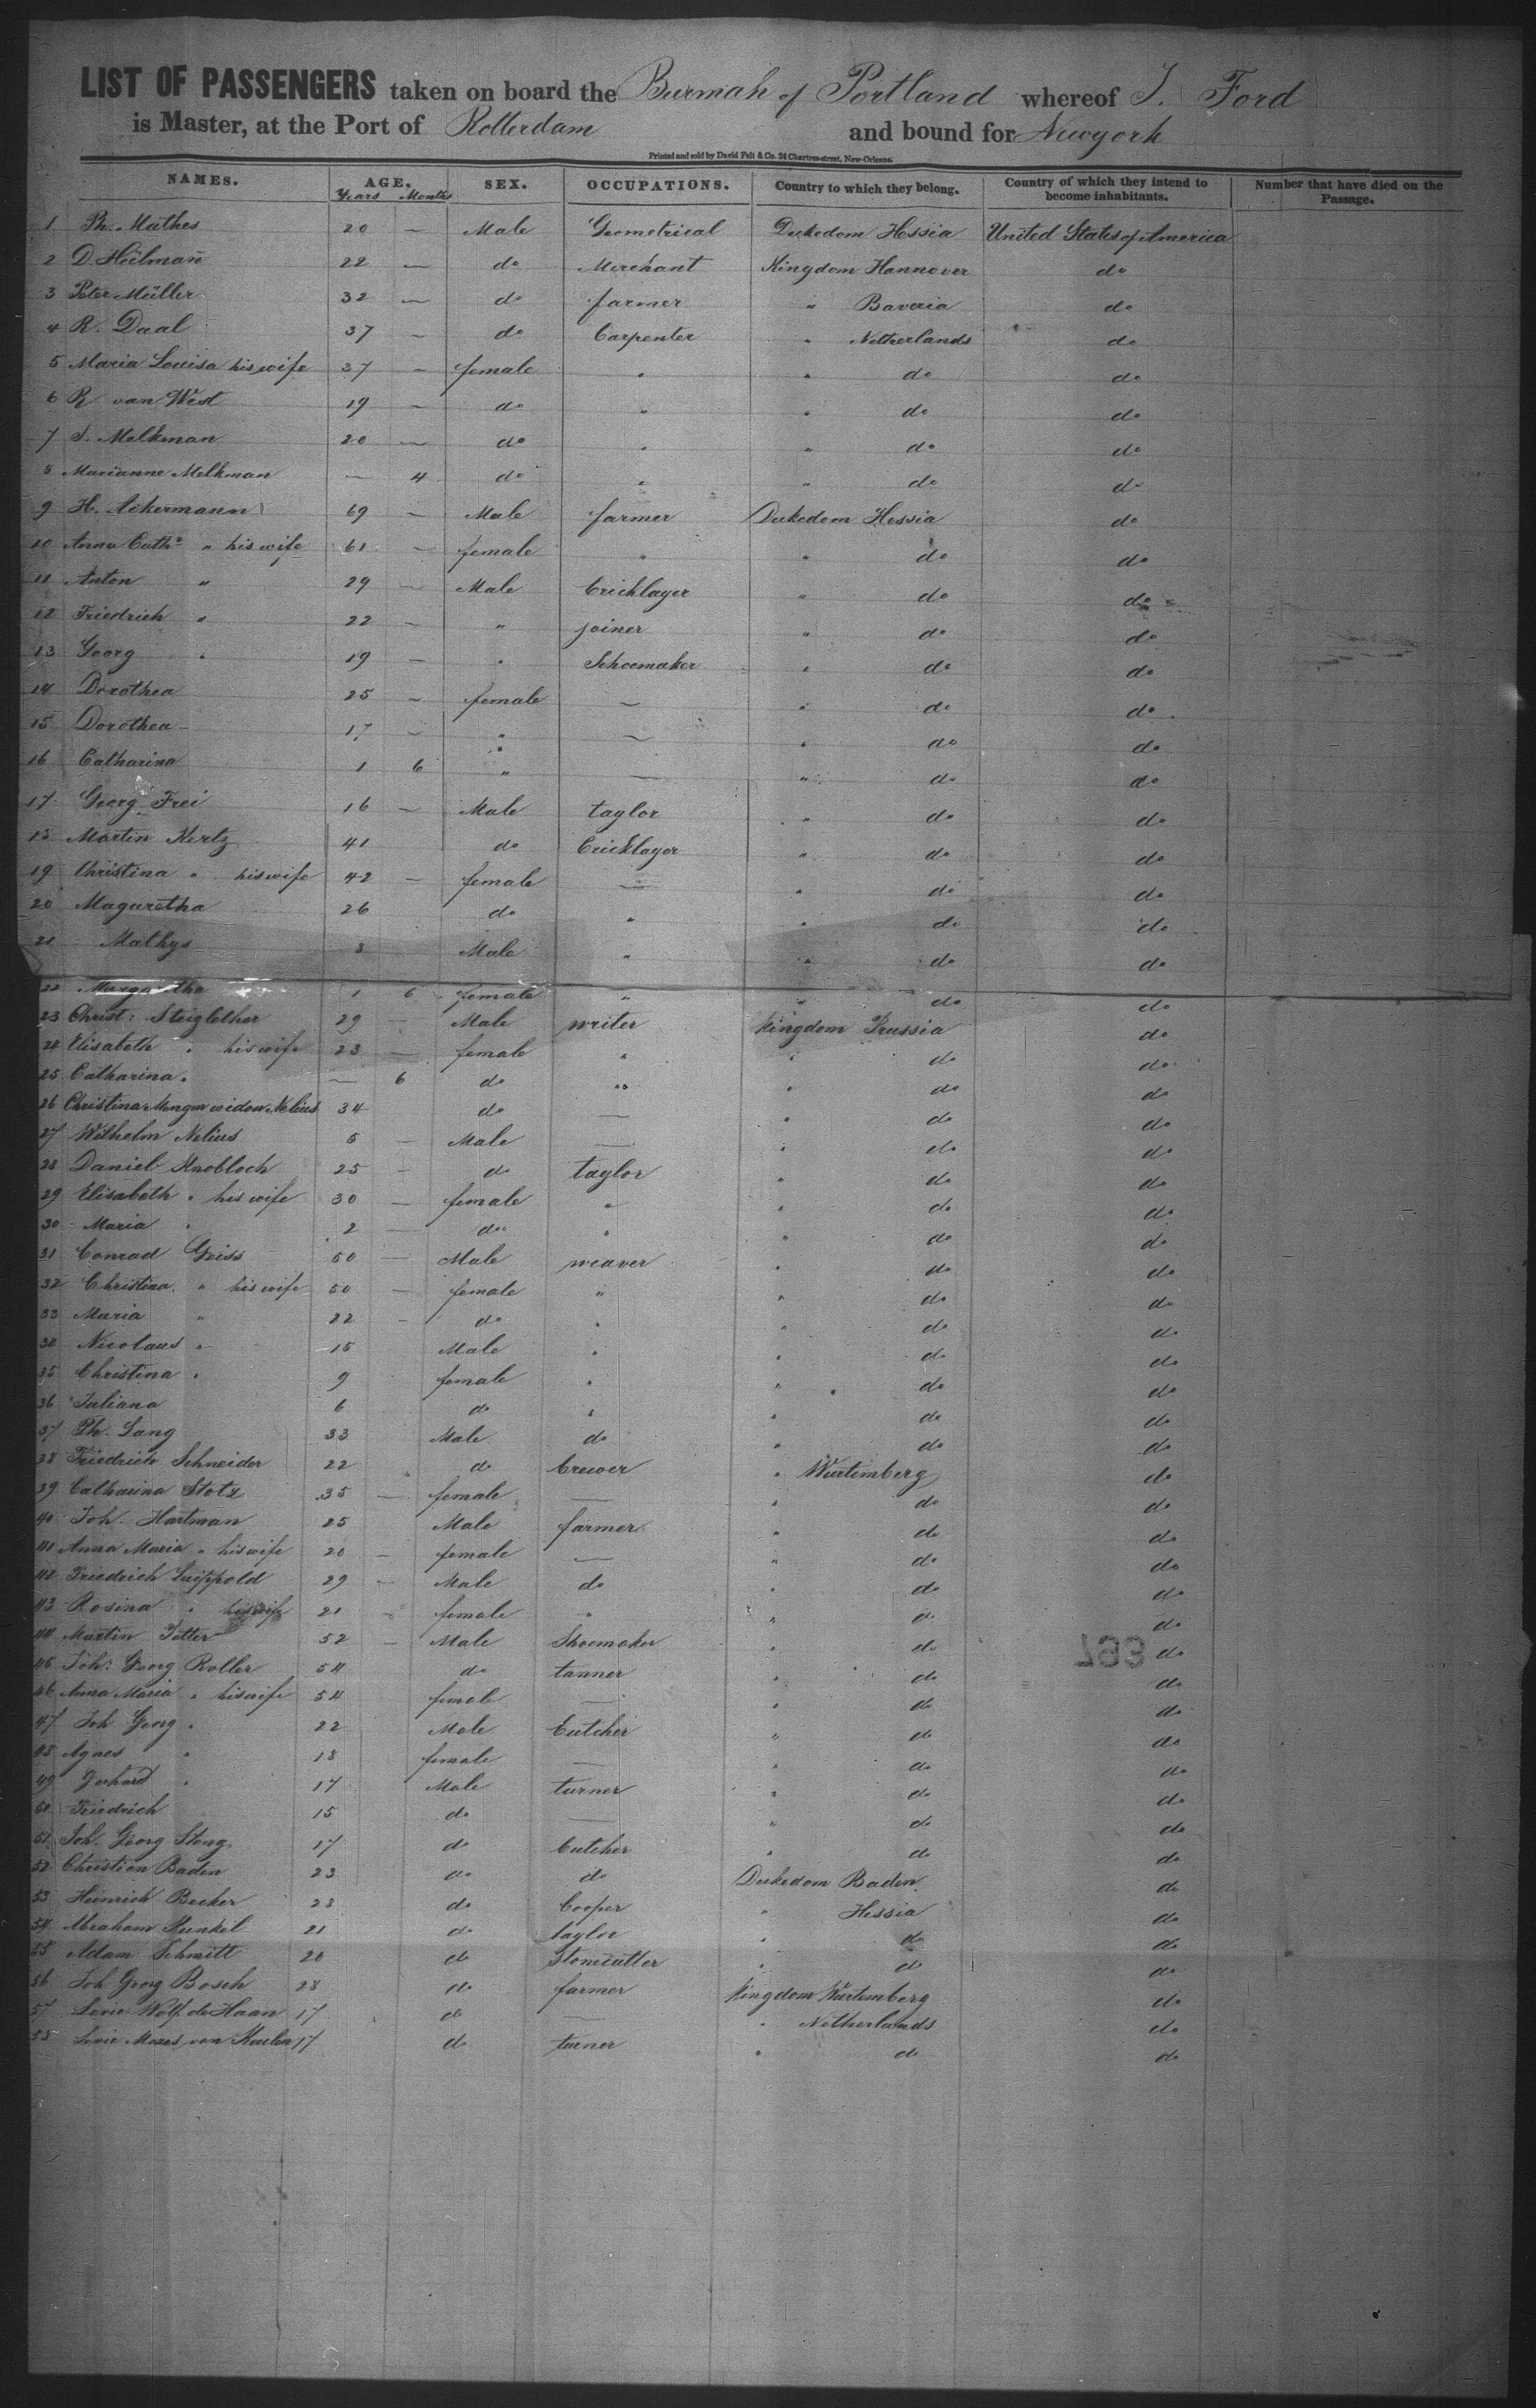 LIST OF PASSENGERS taken on board the Burmah of Portland whereof J. Ford
is Master, at the Port of Rotterdam and bound for Newyork
Printed and sold by David Felt & Co. 24 Chartres-street, New-Orleans.
NAMES. AGE. SEX. OCCUPATIONS. Country to which they belong. Country of which they intend to become inhabitants. Number that have died on the Passage.
Years Months
1 Ph. Mathes 20 — Male Geometrical Dukedom Hessia United States of America
2 D. Heilman 22 — do Merchant Kingdom Hannover do
3 Peter Müller 32 — do farmer " Bavaria do
4 R. Daal 37 — do Carpenter " Netherlands do
5 Maria Louisa his wife 37 — female " " do do
6 R van West 19 — do " " do do
7 S. Melkman 20 — do " " do do
8 Marianne Melkman — 4 do " " do do
9 H. Ackermann 69 — Male farmer Dukedom Hessia do
10 Anna Cath. " his wife 61 — female " " do do
11 Anton " 29 — Male bricklayer " do do
12 Friedrich " 22 — " joiner " do do
13 Georg " 19 — " Schoemaker " do do
14 Dorothea 25 — female — " do do
15 Dorothea 17 — " — " do do
16 Catharina 1 6 " — " do do
17 Georg Frei 16 — Male taylor " do do
18 Martin Kertz 41 do bricklayer " do do
19 Christina " his wife 42 — female — " do do
20 Magaretha 26 do " " do do
21 Mathys 8 Male " " do do
22 Margaretha 1 6 female " " do do
23 Christ: Steiglether 29 — Male writer Kingdom Prussia do
24 Elisabeth " his wife 23 — female " " do do
25 Catharina " — 6 do " " do do
26 Christina Menger widow Nelius 34 do — " do do
27 Wilhelm Nelius 5 — Male — " do do
28 Daniel Knobloch 25 — do taylor " do do
29 Elisabeth " his wife 30 — female " " do do
30 Maria " 2 — do " " do do
31 Conrad Geiss 50 — Male weaver " do do
32 Christina " his wife 50 — female " " do do
33 Maria " 22 — do " " do do
34 Nicolaus " 15 Male " " do do
35 Christina " 9 female " " do do
36 Juliana 6 do " " do do
37 Ph. Lang 33 Male do " do do
38 Friedrich Schneider 22 do brewer " Würtemberg do
39 Catharina Stotz 35 — female — " do do
40 Joh. Hartman 25 Male farmer " do do
41 Anna Maria " his wife 20 — female — " do do
42 Friedrich Luippold 29 — Male do " do do
43 Rosina " his wife 21 — female " " do do
44 Martin Totter 52 — Male Shoemaker " do do
45 Joh: Georg Roller 54 do tanner " do do
46 Anna Maria " his wife 54 female — " do do
47 Joh Georg " 22 Male butcher " do do
48 Agnes " 18 female — " do do
49 Gerhard " 17 Male turner " do do
50 Friedrich 15 do — " do do
51 Joh. Georg Steng 17 do butcher " do do
52 Christian Baden 23 do do Dukedom Baden do
53 Heinrich Becker 28 do Cooper " Hessia do
54 Abraham Runkel 21 do taylor " do do
55 Adam Schmitt 20 do Stonecutter " do do
56 Joh Georg Bosch 28 do farmer Kingdom Würtemberg do
57 Levie Wolf de Haan 17 do — " Netherlands do
58 Levie Mozes van Keulen 17 do turner " do do
367